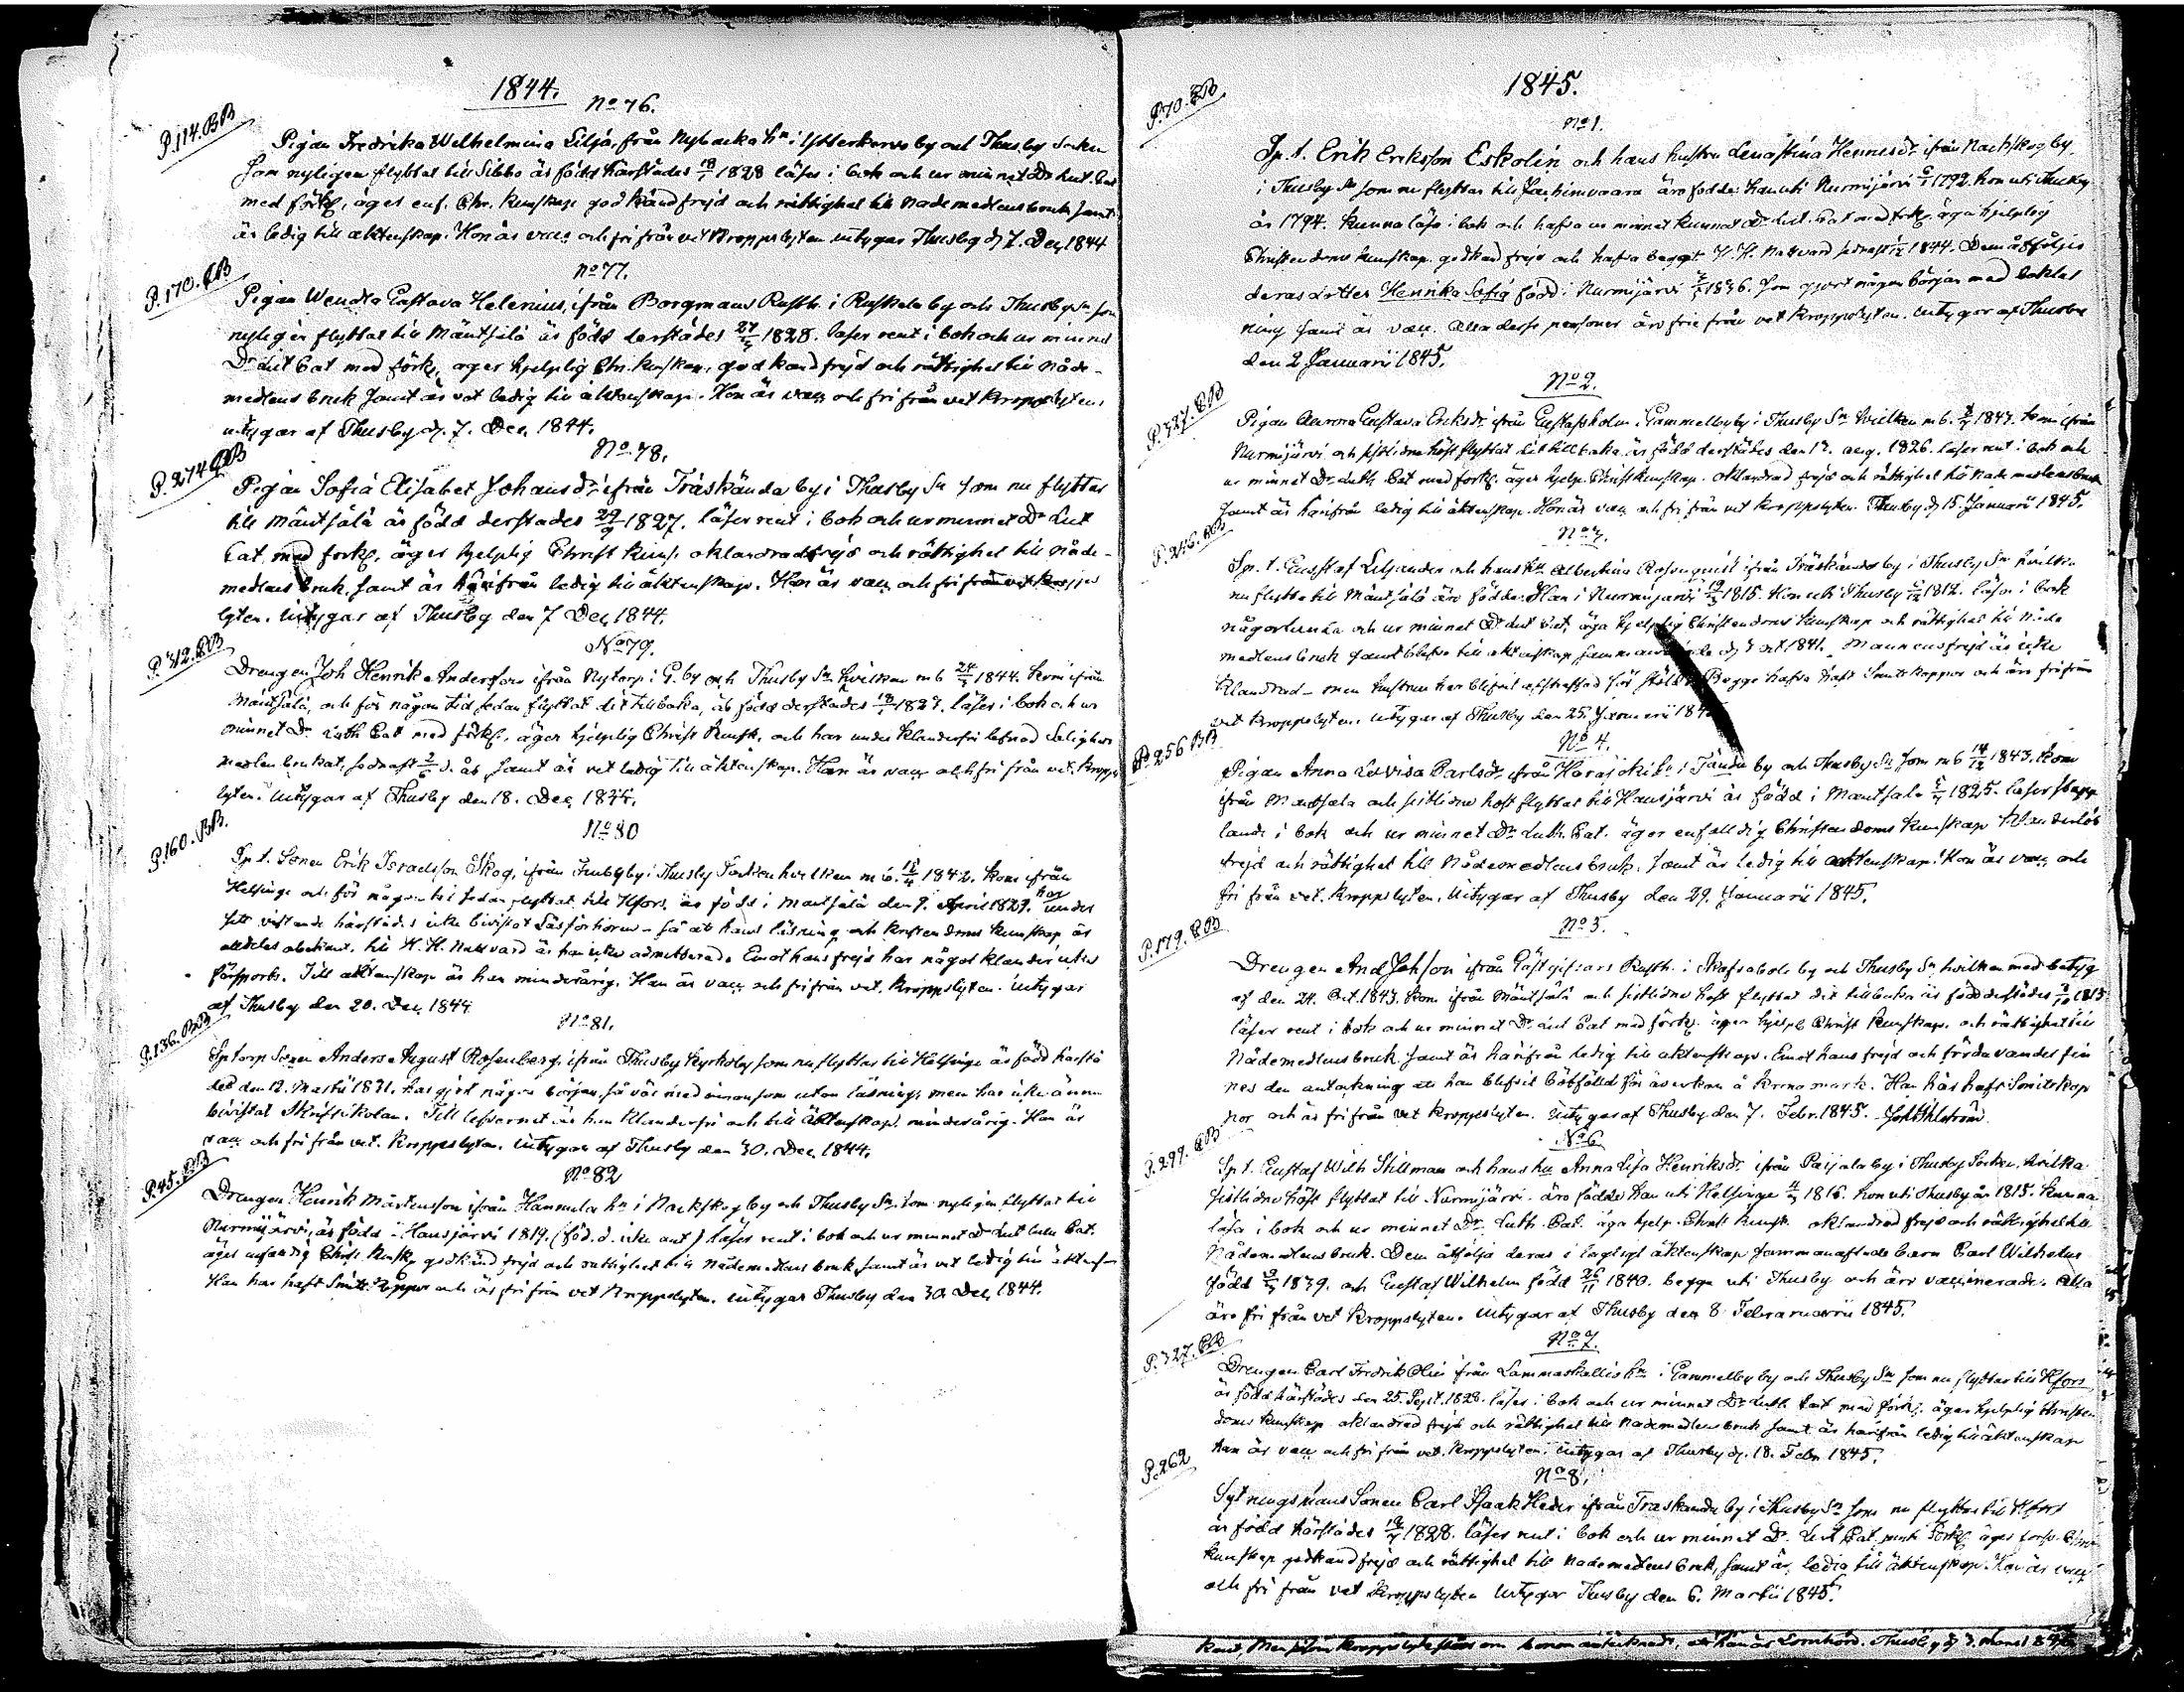 1844.
No 76.
P.114.BB
Pigan Fredrika Wilhelmina Lilja, från Nybacka hn i Ytterkervo by och Thusby Socken
Som nyligen flyttat till Sibbo är född härstädes 18/1 1828 läser i bok och ur minnet Dr Lut. Cat
med förkl, äger enf. Chr. kunskap god känd frejd och rättighet till nademedlens bruk samt
är ledig till äktenskap. Hon är vacc och fri från vet kroppslyten intygar Thusby d. 7. Dec 1844
No 77.
P.170.BB
Pigan Wendla Gustava Helenius, ifrån Borgmans Rusth. i Ruskela by och Thusby Sn som
nyligen flyttat till Mäntsälä är född derstädes 1828. läser rent i bok och ur minnet
Dr Lut Cat med förkl, äger hjelplig Chr. kunskap, god känd frejd och rättighet till nåde-
medlens bruk samt är vet ledig till äktenskap. Hon är vacc och fri från vet kroppslyten,
intygar af Thusby d. 7. Dec. 1844.
No 78.
P.274 BB
Pigan Sofia Elisabet Johansdr ifrån Träskända by i Thusby Sn som nu flyttar
till Mäntsälä är född derstades 29/9 1827. läser rent i bok och ur minnet Dr Lut
Cat med forkl, äger hjelplig Christ kunsk oklandrad frejd och rättighet till nåde-
medlens bruk, samt är härifrån ledig till äktenskap. Hon är vacc och fri från vet kropps
lyten. intygar af Thusby den 7 Dec 1844.
No 79.
P.312.BB
Drengen Joh Henrik Andersson ifrån Nytorp i G. by och Thusby Sn hvilken m b 1844. kom ifrån
Mäntsälä, och för någon tid sedan flyttat dit tillbaka, är född derstädes 1827. läser i bok och ur
minnet Dr Luth Cat med förkl, äger hjelplig Christ kunsk, och har under klanderfri lefnad Salighets
medlen brukat, sednast d. år samt är vet ledig till äktenskap. Han är vacc och fri från vet. kropps
lyten. intygar af Thusby den 18. Dec 1844.
No 80
P.160.BB.
Sp t. Sonen Erik Israelsson Skog, ifrån by i Thusby Socken hvilken m b. 1842. kom ifrån
Helsinge och för någon tid sedan flyttat till Hfors, är född i Mäntsälä den 9. April 1827. har under
sitt vistande härstädes icke bivistat Läsförhören så att hans läsning och kristendoms kunskap är
alldeles obekant. till H. H. Nattvard är han icke admitterad. Emot hans frejd har något klander icke
försports. Till äktenskap är han minderårig. Han är vacc och fri från vet. kroppslyten. intygar
af Thusby den 20. Dec 1844
No 81.
P.136.BB
Sptorp Sonen Anders August Rosenberg, ifrån Thusby Kyrkoby som nu flyttar till Helsinge är född härstä
des den 12. Martii 1831. har gjort någon början, så väl med innan som utan läsning, men har icke ännu
bivistat Skriftskolan. Till lefvernet är han klanderfri och till äktenskap minderårig. Han är
vacc och fri från vet. kroppslyten. intygar af Thusby den 30. Dec 1844.
No 82
P.45.BB
Drengen Henrik Mårtensson ifrån Hannula hn i Nackskog by och Thusby Sn som nyligen flyttat till
Nurmijärvi, är född i Hausjärvi 1819. (föd. d. icke ant) läser rent i bok och ur minnet Dr Lut Cat.
äger enfaldig Christ. kunsk, godkänd frejd och rättighet till Nådemedlens bruk, samt är vet ledig till äktensk
Han har haft Smitt. koppor och är fri från vet kroppslyten. intygar Thusby den 30. Dec 1844.
1845.
No 1.
P.70.BB
Sp. t. Erik Eriksson Eskolin och hans hustru Lenastina Hennesdr ifrån Nackskog by
i Thusby Sn som nu flyttar till äro födde. han uti Nurmijärvi 1792. hon uti Thusby
år 1794. kunna läsa i bok och hafva ur minnet kunnat Dr Lut. Cat med förkl äga hjelplig
Christendoms kunskap. godkänd frejd och hafva begge H. H. Nattvard sednast 1844. Dem åtföljer
deras dotter Henrika Sofia född i Nurmijärvi 1836. som gjort någon början med boklär
ning samt är vacc. alla dessa personer äro frie från vet kroppslyten. intygar af Thusby
den 2 Januarii 1845.
No 2.
P.327.BB
Pigan Aurora Gustava Eriksdr ifrån Gustafsholm i Gammelby by i Thusby Sn hvilken m b. 1843. kom ifrån
Nurmijärvi och sistlidne höst flyttat dit tillbaka är född derstädes den 12. aug. 1826. läser rent i bok och
ur minnet Dr Luth. Cat med förkl. äger hjelp. Christ kunskap. oklandrad frejd och rättighet till Nademedlens bruk
samt är härifrån ledig till äktenskap. Hon är vacc och fri från vet kroppslyten. Thusby d. 15. Januari 1845.
No 3.
P.246.BB
Sp. t. Gustaf Liljander och hans hu Albertina Rosenquist ifrån Träskända by i Thusby Sn hvilka
nu flytta till Mäntsälä äro födde. Han i Nurmijärvi 1815. Hon uti Thusby 1812. läsa i bok
någorlunda och ur minnet Dr Lut Cat, äga hjelplig Christendoms kunskap och rättighet till Nåde
medlens bruk samt blifvit till äktenskap d. 3 oct 1841. Mannens frejd är icke
klandrad - men hustrun har blifvit afstraffad för Begge hafva haft Smitt koppor och äro fri från
vet kroppslyten. intygar af Thusby den 25. Januarii 184
No 4.
P.256 BB
Pigan Anna Lovisa Carlsdr ifrån Harajoki i Tandu by och Thusby Sn som m b 14/12 1843. kom
ifrån Mäntsälä och sistlidne höst flyttat till Hausjärvi är född i Mäntsälä 1825. läser stapp
lande i bok och ur minnet Dr Luth. Cat. äger enfaldig Christendoms kunskap klanderlös
frejd och rättighet till Nådemedlens bruk, samt är ledig till äktenskap. Hon är vacc och
fri från vet. kroppslyten. intygar af Thusby den 29. Januarii 1845.
No 5.
P.179.BB
Drengen And Johsson ifrån Gästgifvars Rusth. i Skafvabole by och Thusby Sn hvilken med betyg
af den 24. Oct. 1843. kom ifrån Mäntsälä och sistlidne höst flyttat dit tillbaka är född derstädes 1815
läser rent i bok och ur minnet Dr Lut Cat med förkl. äger hjelpl Christ kunskap. och rättighet till
Nådemedlens bruk samt är härifrån ledig till äktenskap. Emot hans frejd och förda vandel fin
nes den antekning att han blifvit bötfälld för åverkan å krono mark. Han har haft Smittkop
por och är fri från vet kroppslyten. intygar af Thusby den 7. Febr. 1845. Joh Ahlström
No 6
P.299.BB
Sp t. Gustaf Wilh Stillman och hans hu Anna Lisa Henriksdr ifrån Paijala by i Thusby Socken, hvilka
sistlidne höst flyttat till Nurmijärvi. äro födde han uti Helsinge 1816. hon uti Thusby år 1815. kunna
läsa i bok och ur minnet Dr. Luth. Cat. äga hjelp. Christ kunsk oklandrad frejd och rättighet till
Nådemedlens bruk. Dem åtfölja deras i lagligt äktenskap sammanaflade barn Carl Wilhelm
född 1839. och Gustaf Wilhelm född 26/11 1840. begge uti Thusby och äro vaccinerade. Alla
äro fri från vet kroppslyten. intygar af Thusby den 8. Februarii 1845.
No 7.
P.327.BB
Drengen Carl Fredrik ifrån Lammaskallio hn i Gammelby by och Thusby Sn som nu flyttar till Hfors
är född härstädes den 25. Sept. 1828. läser i bok och ur minnet Dr Luth Cat med förkl. äger hjelplig Christen
doms kunskap oklandrad frejd och rättighet till Nademedlens bruk samt är härifrån ledig till äktenskap
han är vacc och fri från vet. kroppslyten, intygar af Thusby d. 18. Febr 1845.
No 8.
P.262
Sytningsmans Sonen Carl Isaak Heder ifrån Träskända by i Thusby Sn som nu flyttar till Hfors
är född härstädes 1828. läser rent i bok och ur minnet Dr. Lut Cat med förkl. äger
kunskap godkänd frejd och rättighet till nademedlens bruk, samt är ledig till äktenskap. Han är vacc
och fri från vet kroppslyten intygar Thusby den 6. Martii 1845.